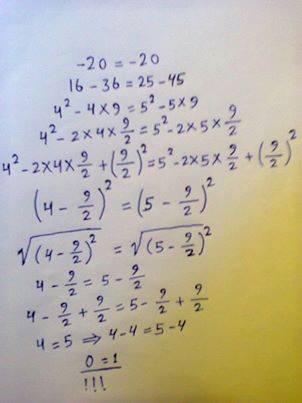 -20 = -20
16 - 36 = 25 - 45
4² - 4×9 = 5² - 5×9
4² - 2×4×9/2 = 5² - 2×5×9/2
4² - 2×4×9/2 + (9/2)² = 5² - 2×5×9/2 + (9/2)²
(4 - 9/2)² = (5 - 9/2)²
√(4 - 9/2)² = √(5 - 9/2)²
4 - 9/2 = 5 - 9/2
4 - 9/2 + 9/2 = 5 - 9/2 + 9/2
4 = 5 ⇒ 4-4 = 5-4
0 = 1
!!!